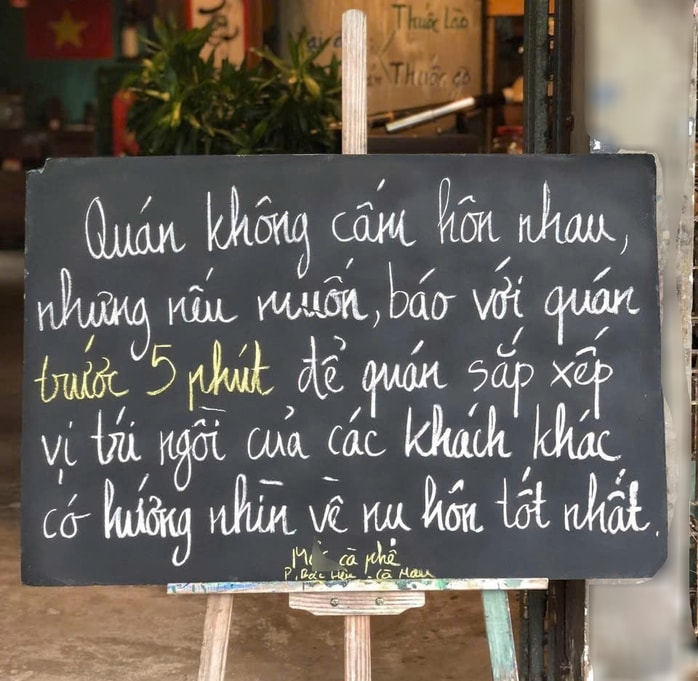 Thuốc Lào
Thuốc
Quán không cấm hôn nhau,
nhưng nếu muốn, báo với quán
trước 5 phút để quán sắp xếp
vị trí ngồi của các khách khác
có hướng nhìn về nụ hôn tốt nhất.
cà phê
P. Cà Mau